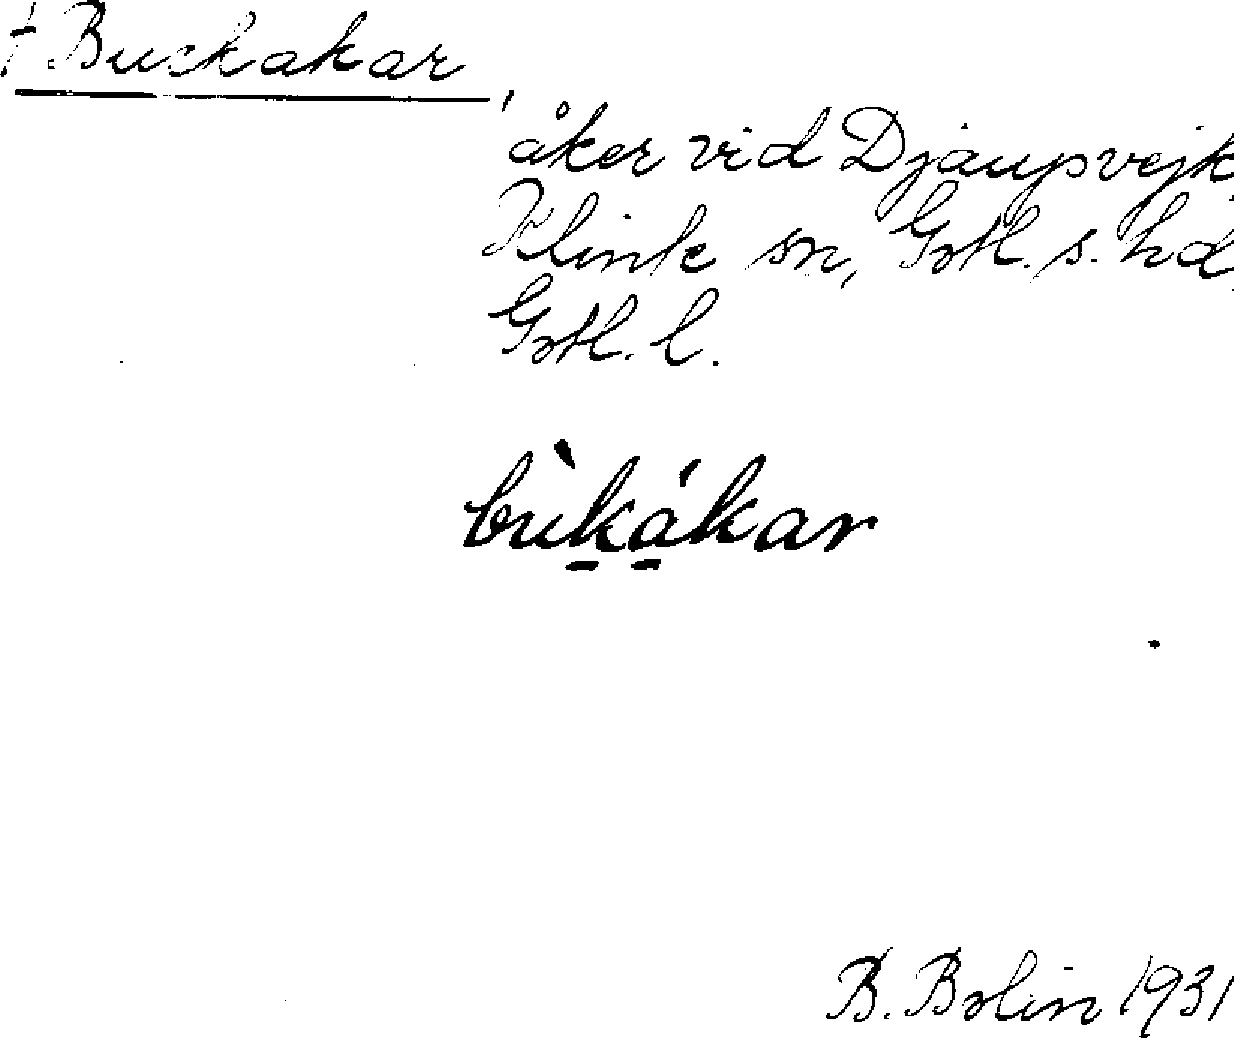 † Buckakar,
åker vid Djaupsvejk,
Klinte sn, Gotl. s. hd,
Gotl. l.
bùkákar
B. Bolin 1931